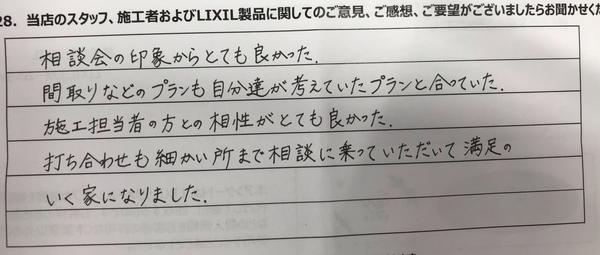 28. 当店のスタッフ、施工者およびLIXIL製品に関してのご意見、ご感想、ご要望がございましたらお聞かせくだ
相談会の印象からとても良かった.
間取りなどのプランも自分達が考えていたプランと合っていた.
施工担当者の方との相性がとても良かった.
打ち合わせも細かい所まで相談に乗っていただいて満足の
いく家になりました.